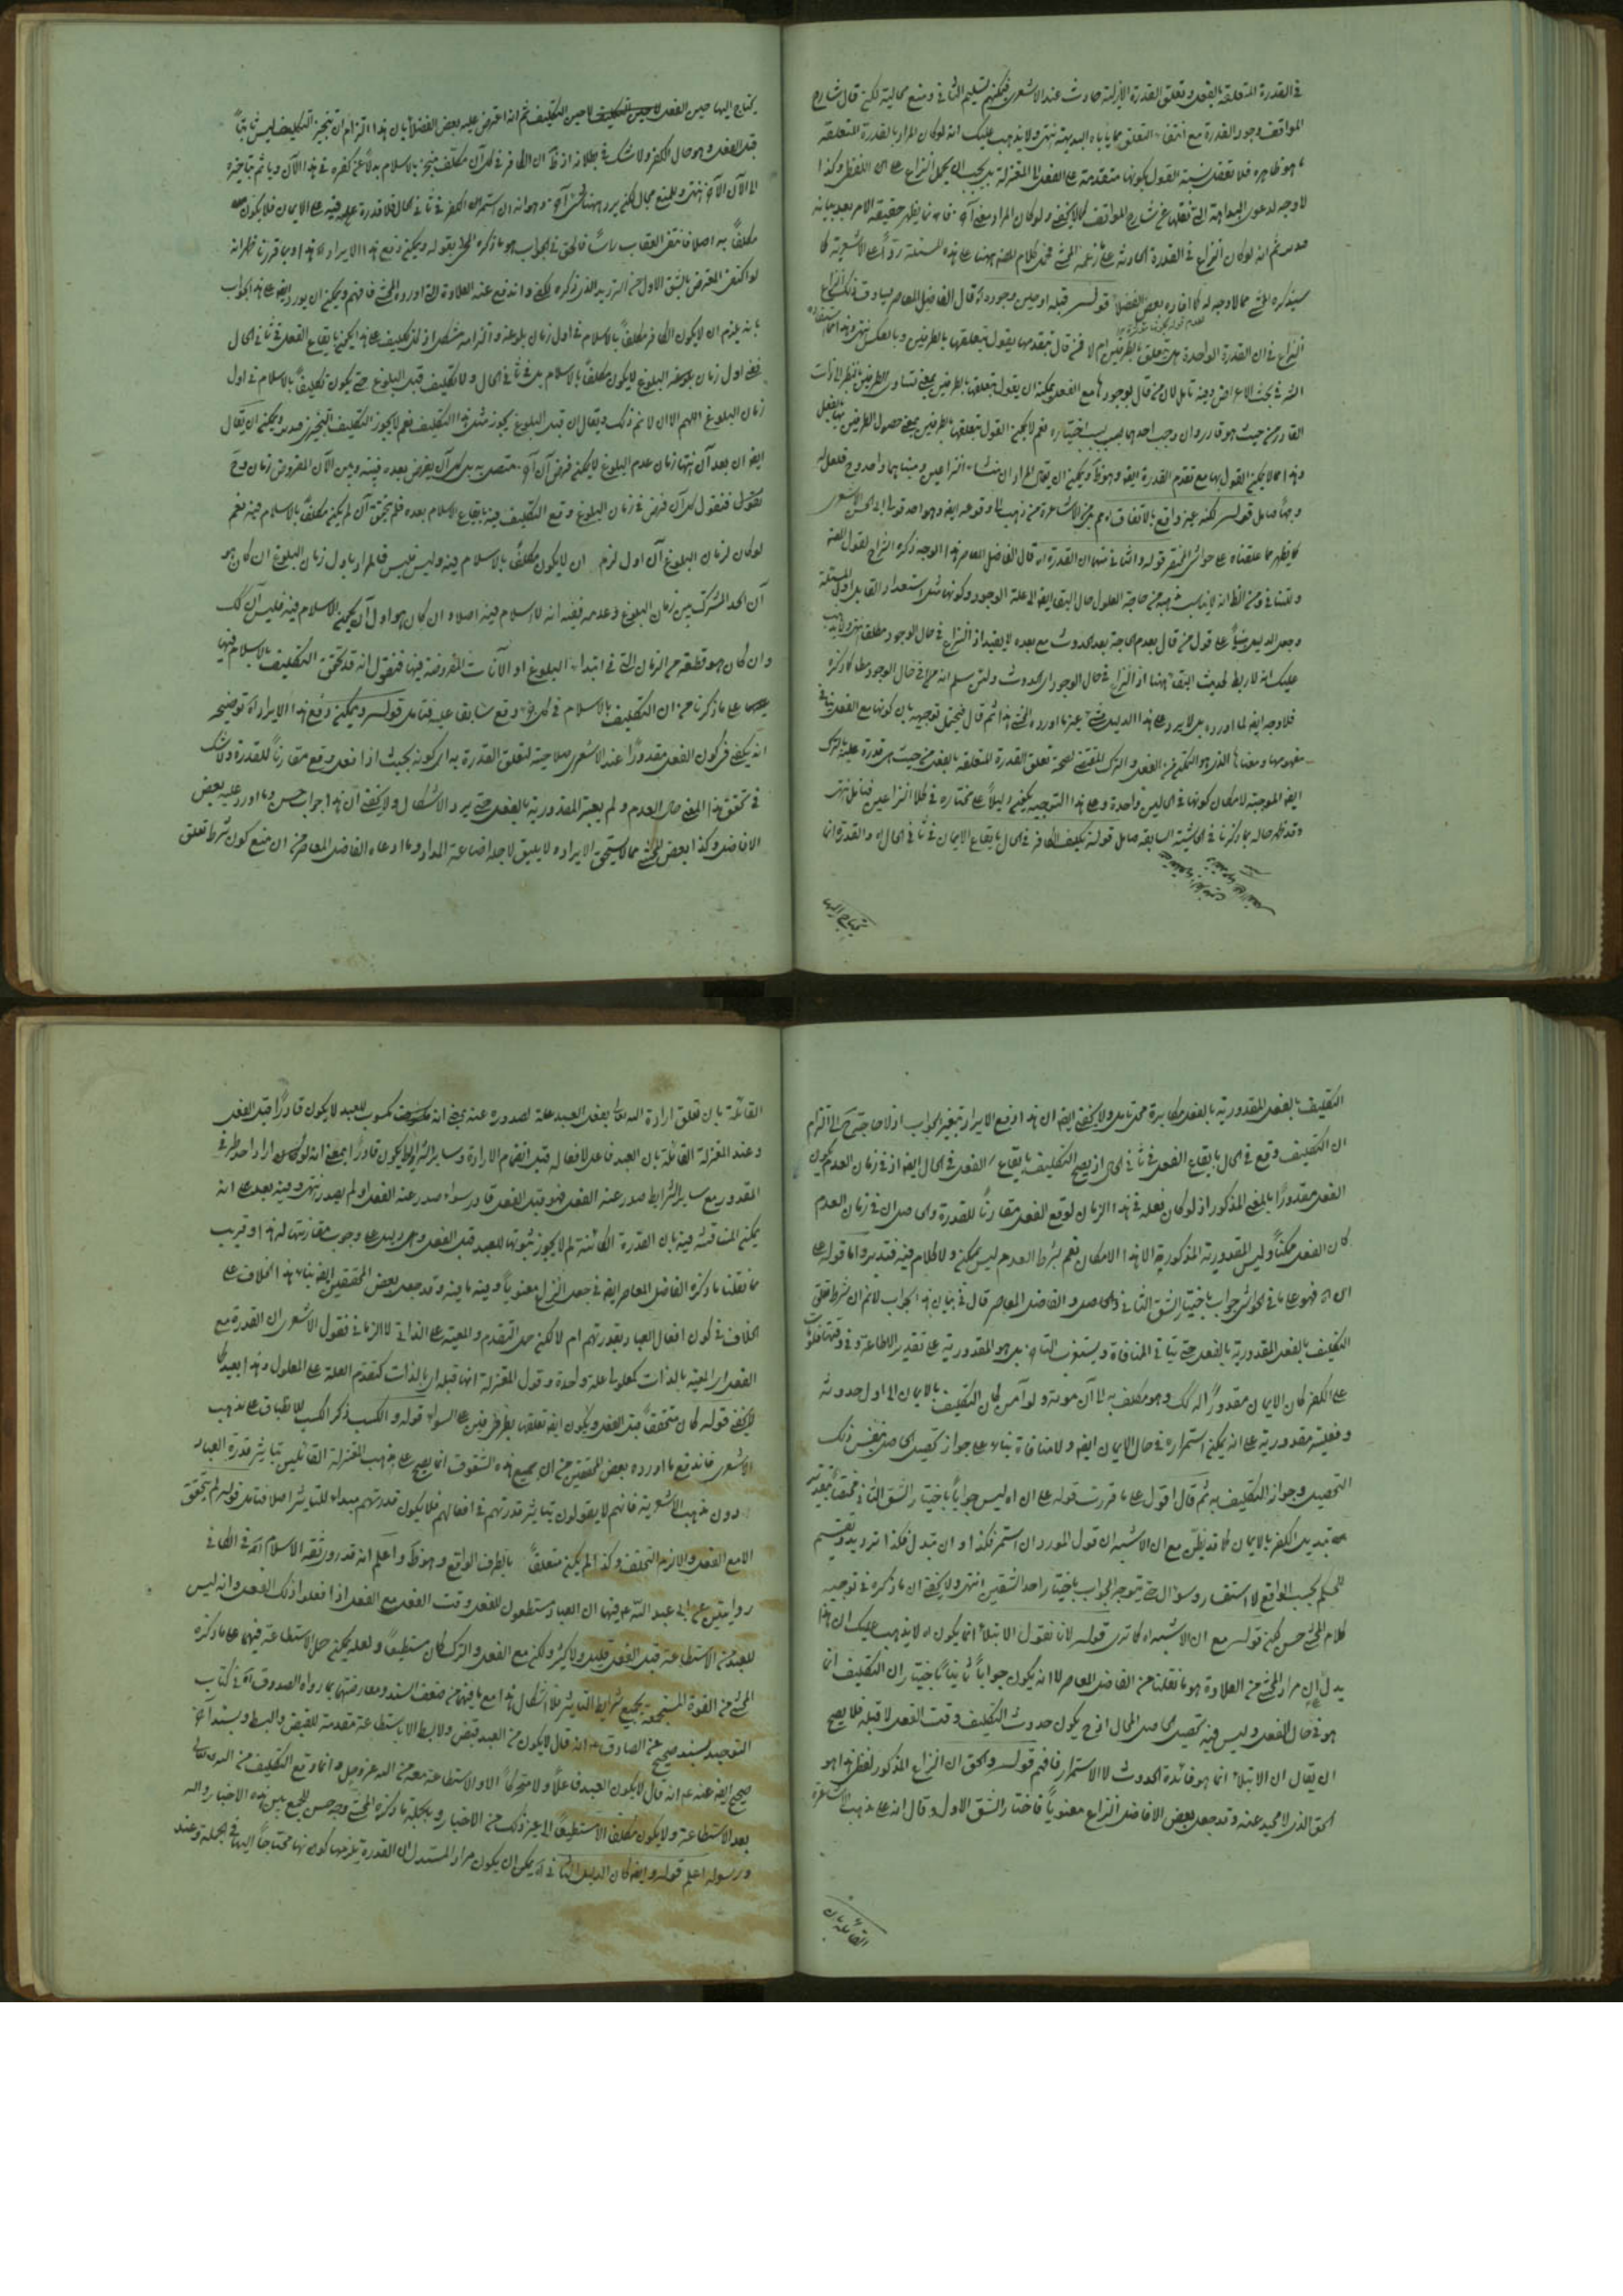 في القدرة المتعلقة بالفعل وتعلق القدرة الازلية حادث عند الاشعري فيمكنهم تسليم الثاني ومنع محالية لكن قال شارح
المواقف وجود القدرة مع انتفاء التعلق مما ياباه البديهة انتهى ولا يذهب عليك انه لو كان المراد بالقدرة المتعلقة
ما هو ظاهره فلا تغفل نسبة القول بكونها متقدمة على الفعل الى المعتزلة بل يجب ان يحمل النزاع على اللفظي وكذا
لا وجه لدعوى البداهة التي نقلها عن شارح المواقف كما لا يخفى ولو كان المراد معنى آخر فانما يظهر حقيقة الامر بعد بيانه
ثم انه لو كان النزاع في القدرة الحادثة على ما زعمه المحشي كلام المصنف ههنا على هذه المسئلة ردا على الاشعرية كما
سيذكره المحشي مما لا وجه له كما افاده بعض الفضلاء قوله قبله او حين وجوده قال الفاضل المعاصر يساوق ذلك النزاع
النزاع في ان القدرة الواحدة هل تتعلق بالطرفين ام لا فمن قال بتقدمها يقول بتعلقها بالطرفين وبالعكس انتهى
في بحث الاعراض وفيه تامل لان من قال بوجودها مع الفعل يمكنه ان يقول بتعلقها بالطرفين بمعنى تساوي الطرفين بالنظر الى ذات
القادر من حيث هو قادر وان وجب احدهما بحسب اختياره نعم لا يمكن القول بتعلقها بالطرفين بمعنى حصول الطرفين بها بالفعل
وهذا مما لا يمكن القول بها مع تقدم القدرة ايضا وهو ظاهر ويمكن ان يقال المراد ان منشاء النزاعين ومبناهما واحد
قوله لكنه غير واقع بالاتفاق من الاشاعرة من ذهب الى وقوعه ايضا وهو احد قولي ابي الحسن الاشعري
كما يظهر مما علقناه على حواشي المختصر قوله والثاني منهما ان القدرة اه قال الفاضل المعاصر هذا الوجه ذكره الشراح لقول المصنف
ولقائل ومن الظاهر انه لا يناسب حاجة المعلول حال البقاء ايضا الى علة الوجود وكونها مثل استعداد القابل
على قول من قال بعدم الحاجة بعد الحدوث مع بعده لا يفيد اذ النزاع في حال الوجود مطلقا انتهى ولا يذهب
عليك انه لا ربط لحديث البقاء ههنا اذ النزاع في حال الوجود اي الحدوث ولئن سلم انه في حال الوجود مطلقا كما ذكر
فلا وجه ايضا لما اورده بل لا يرد على هذا الدليل شيء غير ما اورده المحشي هذا ثم قال فيحتمل توجيهه بان كونها مع الفعل ينافي
مفهومها ومعناها الذي هو التمكن من الفعل والترك المقتضي لصحة تعلق القدرة المتعلقة بالفعل من حيث هي قدرة عليه بالترك
ايضا الموجبة لامكان كونها في الحالين واحدة وعلى هذا التوجيه يكون دليلا على مختاره في كلا النزاعين فتامل انتهى
وقد ظهر حاله مما ذكرنا في الحاشية السابقة تامل قوله تكليف الكافر في الحال بايقاع الايمان في ثاني الحال اه والقدرة انما
يحتاج اليها
يحتاج اليها حين الفعل لا حين التكليف ثم انه اعترض عليه بعض الفضلاء بان هذا التزام ان تنجيز التكليف ليس ثابتا
قبل الفعل وهو حال الكفر ولا شك في بطلانه اذ ظاهر ان الكافر في كل آن مكلف منجزا بالاسلام بدلا عن كفره في هذا الآن وياثم بتاخيره
الى الآن الآخر انتهى وللمنع مجال لكن يرد ههنا شيء آخر وهو انه ان استمر على الكفر في ثاني الحال فلا قدرة عليه فيه على الايمان فلا يكون
مكلفا به اصلا فانتفى العقاب راسا فالحق في الجواب هو ما ذكره المحشي بقوله ويمكن دفع هذا الايراد اه هذا وبما قررنا ظهر انه
لو اكتفى المعترض بالشق الاول من الترديد الذي ذكره لكفى واندفع عنه العلاوة التي اوردها المحشي فافهم ويمكن ان يورد ايضا على هذا الجواب
بانه يلزم ان لا يكون الكافر مكلفا بالاسلام في اول زمان بلوغه والتزامه مشكل اذ كل تكليف على هذا يكون بايقاع الفعل في ثاني الحال
ففي اول زمان البلوغ لا يكون مكلفا بالاسلام بل في ثاني الحال ولا تكليف قبل البلوغ حتى يكون تكليفا بالاسلام في اول
زمان البلوغ اللهم الا ان لا نم ذلك ويقال ان قبل البلوغ يجوز مثل هذا التكليف نعم لا يجوز التكليف التنجيزي ويمكن ان يقال
ايضا ان بعد آن انتهاء زمان عدم البلوغ لا يمكن فرض آن آخر متصل به بل كل آن يفرض بعده فبينه وبين الآن المفروض زمان وح
نقول فنقول كل آن فرض في زمان البلوغ وقع التكليف فيه بايقاع الاسلام بعده فلم يتحقق آن لم يكن مكلفا بالاسلام فيه نعم
لو كان لزمان البلوغ آن اول لزم ان لا يكون مكلفا بالاسلام فيه وليس فليس فالمراد باول زمان البلوغ ان كان هو
آن الحد المشترك بين زمان البلوغ وعدمه ففيه انه لا اسلام فيه اصلا وان كان هو اول آن يمكن الاسلام فيه فليس آن كذلك
وان كان هو قطعة من الزمان التي في ابتداء البلوغ او الآنات المفروضة فيها فنقول انه قد تحقق التكليف بالاسلام فيها
على ما ذكرنا من ان التكليف بالاسلام في كل وقع سابقا عليه فتامل قوله ويمكن دفع هذا الايراد اه توضيحه
انه يكفي في كون الفعل مقدورا عند الاشعري صلاحية لتعلق القدرة به اي كونه بحيث اذا فعل وقع مقارنا للقدرة ولا شك
في تحقق هذا المعنى حال العدم ولم يعتبر المقدورية بالفعل حتى يرد الاشكال ولا يخفى ان هذا جواب حسن وما اورد عليه بعض
الافاضل وكذا بعض المحشين مما لا يستحق الايراد ولا يليق لاجله اضاعة المداد وما ادعاه الفاضل المعاصر من ان منع كون شرط تعلق
التكليف بالفعل المقدورية بالفعل مكابرة محل تامل ولا يخفى ايضا ان هذا دفع الايراد بتغيير الجواب اذ لا حاجة ح الى التزام
ان التكليف وقع في الحال بايقاع الفعل في ثاني الحال اذ يصح التكليف بايقاع الفعل في الحال ايضا اذ في زمان العدم يكون
الفعل مقدورا بالمعنى المذكور اذ لو كان فعله في هذا الزمان لوقع الفعل مقارنا للقدرة والحاصل ان في زمان العدم
كان الفعل ممكنا وليس المقدورية المذكورة الا هذا الامكان نعم بشرط العدم ليس بممكن ولا كلام فيه فتدبر واما قوله على
ان اه فهو على ما في الحواشي جواب باختيار الشق الثاني والحاصل والفاضل المعاصر قال في بيان هذا الجواب لا نم ان شرط تعلق
التكليف بالفعل المقدورية بالفعل حتى ياتي المنافاة ويستغرب التاخر بل هو المقدورية على تقدير الاطاعة وفي وقتها فلو مات
على الكفر كان الايمان مقدورا له كذلك وهو مكلف به الى آن موته ولو آمن كان التكليف بالايمان الى اول حدوثه
وفعلية مقدوريته على انه يمكن استمراره في حال الايمان ايضا ولا منافاة بناء على جواز تحصيل الحاصل بنفس ذلك
التحصيل وجواز التكليف به ثم قال اقول على ما قررت قوله على ان اه ليس جوابا باختيار الشق الثاني
تبديل الكفر بالايمان كما قد يظن مع ان الاشبه ان قول المورد ان استمر فكذا وان تبدل فكذا ترديد وتقسيم
للحكم بحسب الواقع لا استفسار وسؤال حتى يتوجه الجواب باختيار احد الشقين انتهى ولا يخفى ان ما ذكره في توجيه
كلام المحشي حسن لكن قوله مع ان الاشبه اه كما ترى قوله لانا نقول الابتلاء انما يكون اه لا يذهب عليك ان هذا
يدل ان مراد المحشي من العلاوة هو ما نقلنا عن الفاضل المعاصر لا انه يكون جوابا ثانيا باختيار ان التكليف انما
هو في حال الفعل وليس فيه تحصيل الحاصل المحال اذ ح يكون حدوث التكليف وقت الفعل لا قبله فلا يصح
ان يقال ان الابتلاء انما هو فائدة الحدوث لا الاستمرار فافهم قوله والحق ان النزاع المذكور لفظي هذا هو
الحق الذي لا محيد عنه وقد جعل بعض الافاضل النزاع معنويا فاختار الشق الاول وقال انه على مذهب الاشاعرة
القائلة بان
القائلة بان تعلق ارادة الله تعالى بفعل العبد علة لصدوره عنه بمعنى انه مكسوب للعبد لا يكون قادرا قبل الفعل
وعند المعتزلة القائلة بان العبد فاعل لافعاله قبل انضمام الارادة وسائر الشرائط يكون قادرا بمعنى انه لو اراد احد طرفي
المقدور مع سائر الشرايط صدر عنه الفعل فهو قبل الفعل قادر سواء صدر عنه الفعل او لم يصدر انتهى وفيه بعد على انه
يمكن المناقشة فيه بان القدرة الكائنة لم لا يجوز ثبوتها للعبد قبل الفعل واي دليل على وجوب مقارنتها له هذا وقريب
مما نقلنا ما ذكره الفاضل المعاصر ايضا في جعل النزاع معنويا وفيه ما فيه وقد جعل بعض المحققين ايضا بناء هذا الخلاف على
الخلاف في كون افعال العباد بقدرتهم ام لا لكن حمل التقدم والمعية على الذاتي لا الزماني فقول الاشعري ان القدرة مع
الفعل اي المعية بالذات كمعلولي علة واحدة وقول المعتزلة انها قبله اي بالذات كتقدم العلة على المعلول وهذا بعيد كما
لا يخفى قوله كان متحققا قبل الفعل ويكون ايضا تعلقها بالطرفين على السواء قوله والكسب ذكر الكسب للانطباق على مذهب
الاشعري فاندفع ما اورده بعض المحققين من ان جميع هذه الشقوق انما يصح على مذهب المعتزلة القائلين بتاثير قدرة العباد
دون مذهب الاشعرية فانهم لا يقولون بتاثير قدرتهم في افعالهم فلا يكون قدرتهم مبداء للتاثير اصلا فتامل قوله لم يتحقق
الا مع الفعل والا لزم التخلف وكذا لم يكن متعلقا بالطرف الواقع وهو ظاهر واعلم انه قد روى ثقة الاسلام في الكافي
روايتين عن ابي عبد الله ع فيهما ان العباد مستطعون للفعل وقت الفعل مع الفعل اذا فعلوا ذلك الفعل وانه ليس
للعبد من الاستطاعة قبل الفعل قليل ولا كثير ولكن مع الفعل والترك كان مستطيعا ولعله يمكن حمل الاستطاعة فيهما على ما ذكره
المحشي من القوة المستجمعة بجميع شرايط التاثير فلا اشكال هذا مع ما فيهما من ضعف السند ومعارضتهما بما رواه الصدوق في كتاب
التوحيد بسند صحيح عن الصادق ع انه قال لا يكون من العبد قبض ولا بسط الا باستطاعة متقدمة للقبض والبسط وبسند آخر
صحيح ايضا عنه ع انه قال لا يكون العبد فاعلا ولا متحركا الا والاستطاعة معه من الله عز وجل وانما وقع التكليف من الله تعالى
بعد الاستطاعة ولا يكون مكلفا الا مستطيعا الى غير ذلك من الاخبار وبالجملة ما ذكره المحشي وجه حسن للجمع بين هذه الاخبار والله
ورسوله اعلم قوله وايضا كان الدليل الثاني اه يمكن ان يكون مراد المستدل ان القدرة يلزمها كونها محتاجا اليها في الجملة وعند